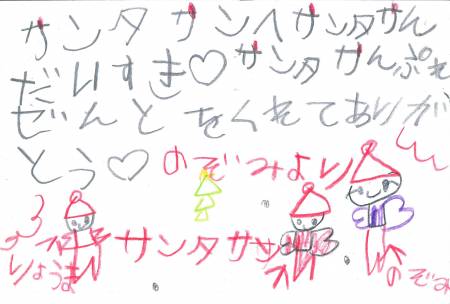 サンタサンへサンタさん
だいすき♡サンタさんぷれ
ぜんとをくれてありが
とう♡のぞみより
サンタサン
りょうま
のぞみ